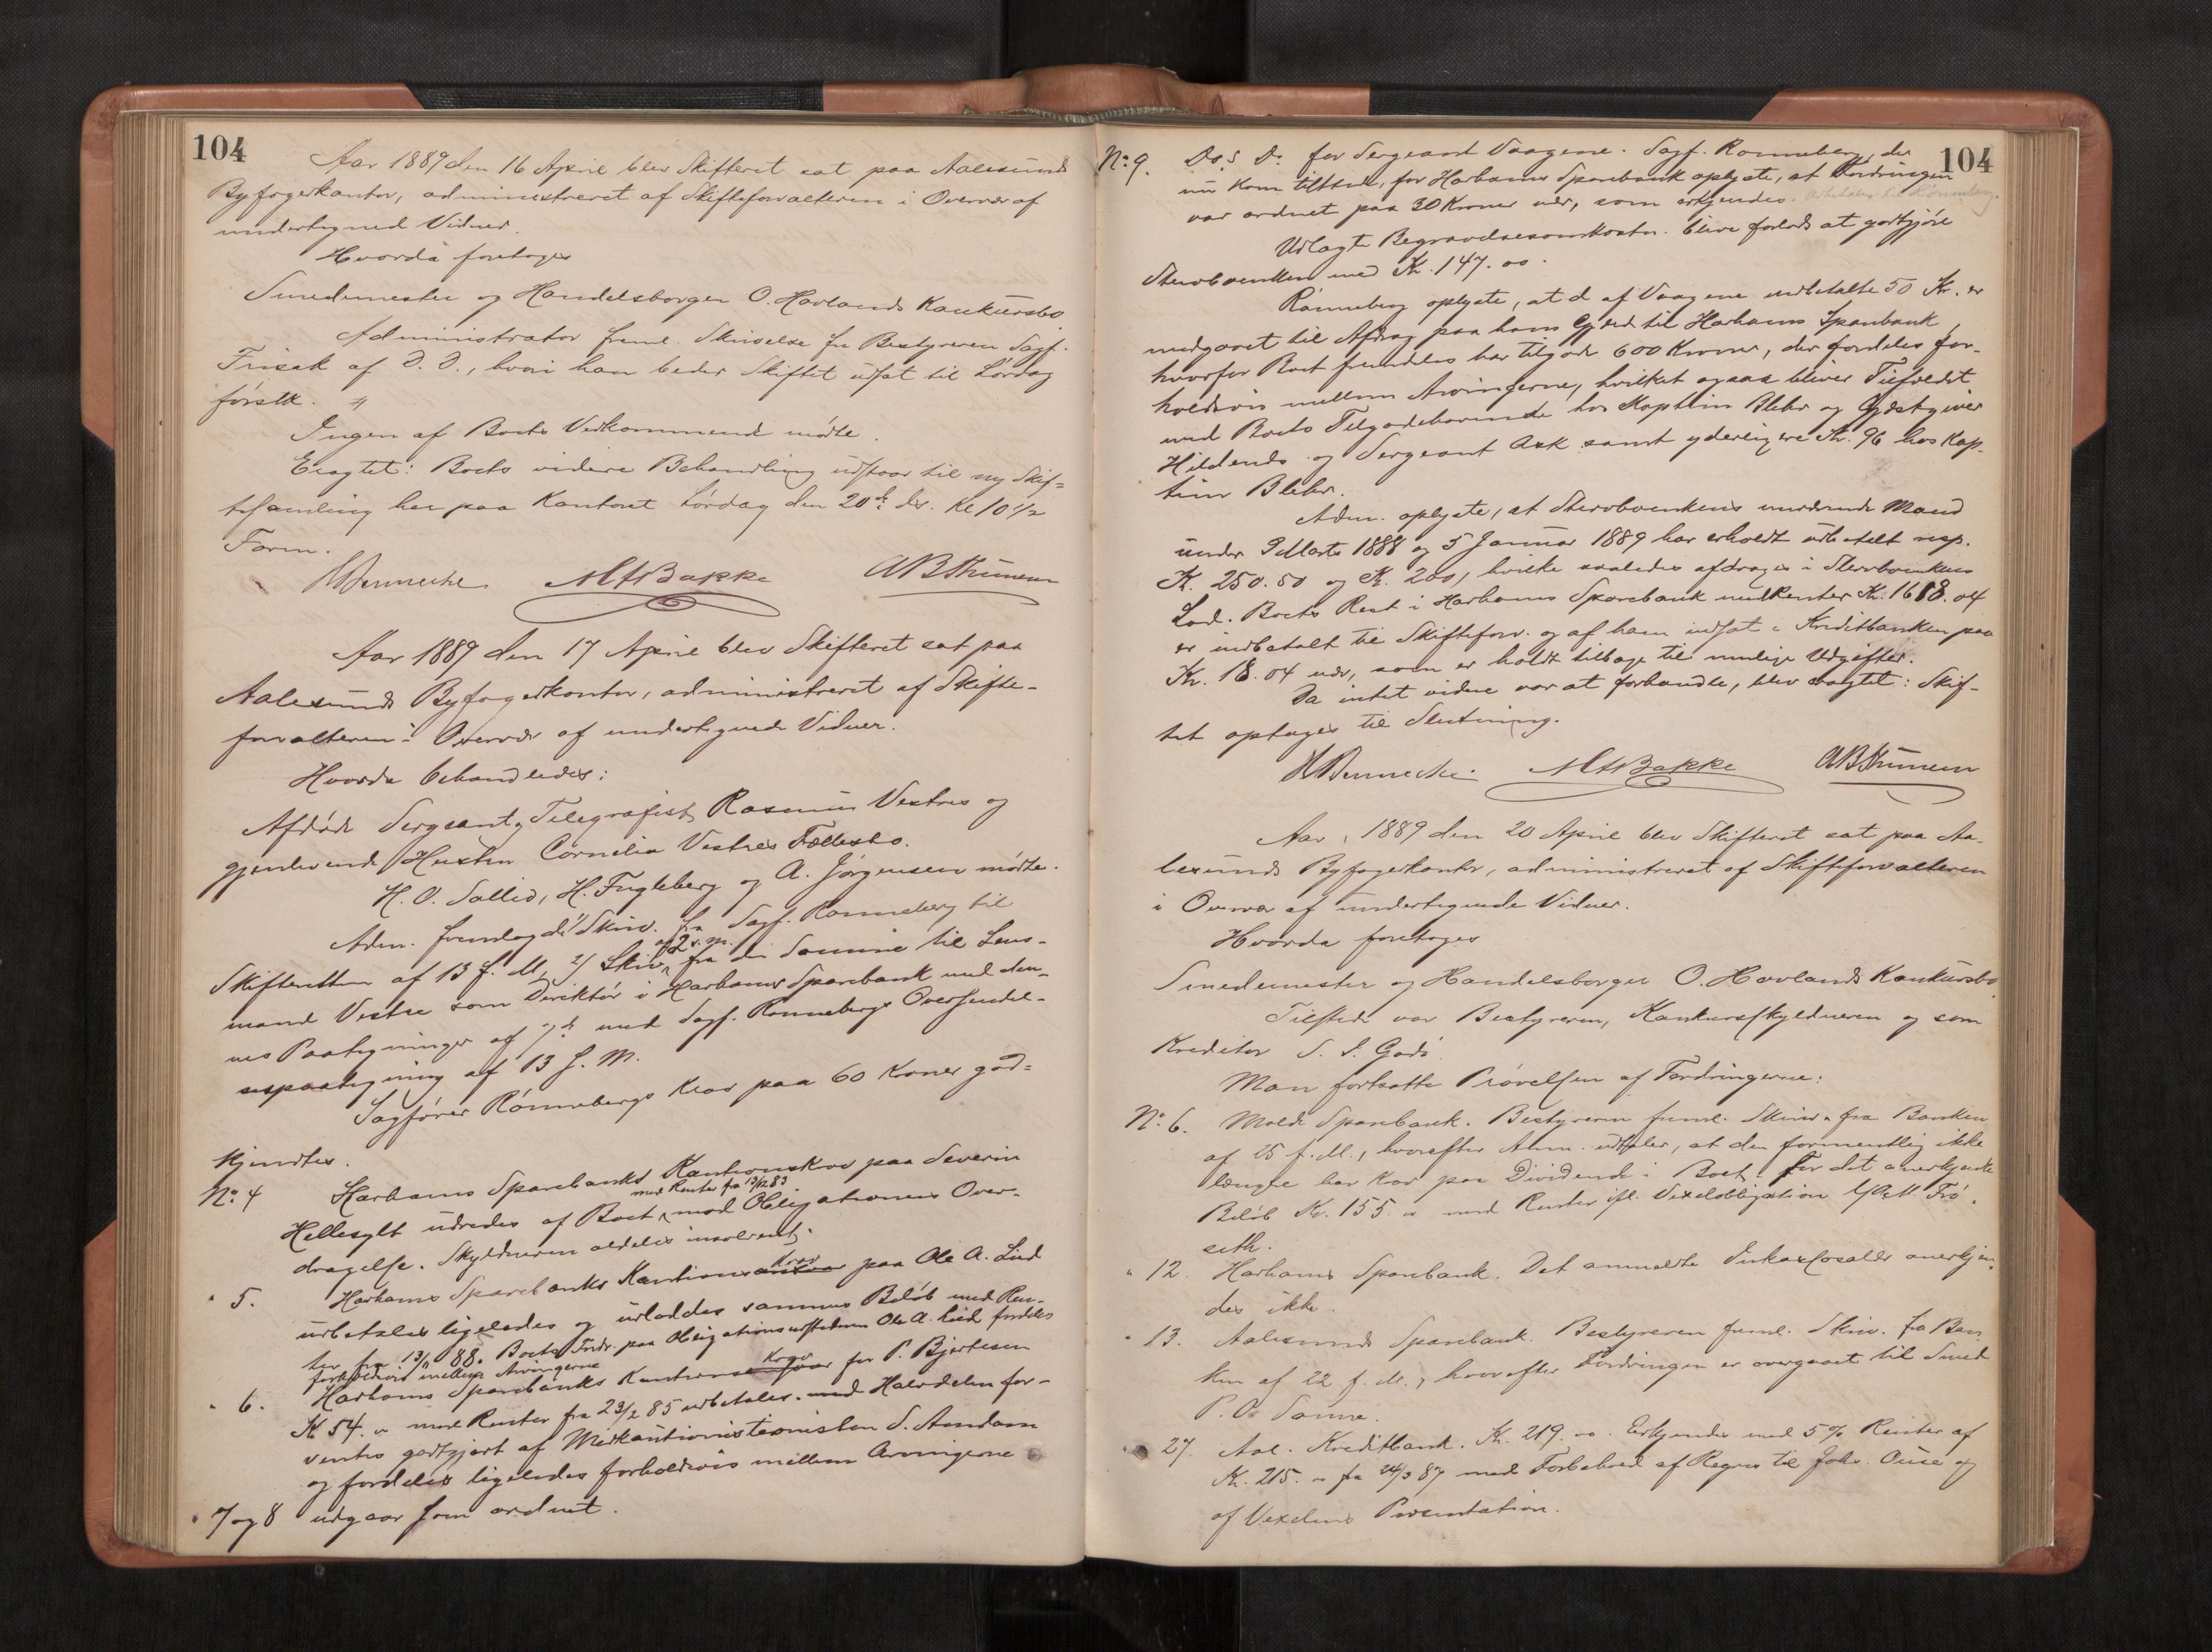 104
Aar 1889 den 16 April blev Skifteret sat paa Aalesunds
Byfogedkontor, administreret af Skifteforvalteren i Overvær af
undertegned Vidner.
Hvorda foretoges
Smedemester og Handelsborger O. Havlands Konkursbo
Administrator freml. Skrivelse fra Bestyreren Sagf.
Frisak af D. D., hvori han beder Skiftet udsat til Lørdag
førstk.
Ingen af Boets Vedkommende mødte.
Eragtet: Boets videre Behandling udstaar til ny Skif=
tesamling her paa Kontoret Lørdag den 20de ds. Kl 10 1/2
Form.
MHBakke
Aar 1889 den 17 April blev Skifteret sat paa
Aalesunds Byfogedkontor, administreret af Skifte-
forvalteren i Overvær af undertegnede Vidner.
Hvorda behandledes:
Afdøde Sergeant, Telegrafist Rasmus Vestres og
gjenlevende Hustru Cornelia Vestres Fællesbo.
H. O. Sollid, H. Fugleberg og A. Jørgensen mødte.
Adm. fremlagde 1/ Skriv. fra Sagf. Rønneberg til
Skifteretten af 13 f. M, 2/ Skriv. af 2 s. M. fra den Samme til Lens-
mand Vestre som Direktør i Harhams Sparebank med den-
nes Paategninger af 7de med Sagf. Rønnebergs Oversendel-
sespaategning af 13 f. M.
Sagfører Rønnebergs Krav paa 60 Kroner god=
kjendtes.
No. 4 Harhams Sparebanks Kautionskrav paa Severin
Hellesylt udredes af Boet med Renter fra 13/12 83 mod Obligationens Over-
dragelse. Skyldneren aldeles insolvent.
" 5. Harhams Sparebanks Kautions krav paa Ole A. Lied
udbetales ligeledes og udloddes sammes Beløb med Ren-
ter fra 13/11 88. Boets Fordr. paa Obligationsudstederen Ole A. Lied fordeles
forholdsvis mellem Arvingerne
" 6. Harhams Sparebanks Kautions Krav for P. Bjertesen
Kr 54. " med Renter fra 23/2 85 udbetales med Halvdelen for-
ventes godtgjort af Medkautionisten S. Aandam
og fordeles ligeledes forholdsvis mellem Arvingerne
" 7 og 8 udgaar som ordnet.
104
No. 9. Do. S Do. for Sergeant Vaagene. Sagf. Rønneberg, der
nu kom tilstede, for Harhams Sparebank oplyste, at Fordringen
var ordnet paa 30 Kroner nær, som erkjendes.
Udlagte Begravelsesomkostn. blive forlods at godtgjøre
Stervboenken med Kr. 147. 00.
Rønneberg oplyste, at d af Vaagene indbetalte 50 Kr. er
medgaaet til Afdrag paa hans Gjæld til Harhams Sparebank,
hvorfor Boet fremdeles har tilgode 600 Kroner, der fordeles for-
holdsvis mellem Arvingerne, hvilket ogsaa bliver Tilfældet
med Boets Tilgodehavende hos Kaptein Blehr og Gjæstgiver
Hildends og Sergeant Ask samt yderligere Kr. 96 hos Kap-
tein Blehr.
Adm. oplyste, at Stervboenkens nuværende Mand
under 9 Marts 1888 og 5 Januar 1889 har erholdt udbetalt resp.
Kr. 250.50 og Kr. 200, hvilke saaledes afdrages i Stervboenkens
Lod. Boets Rest i Harhams Sparebank med Renter Kr. 1688.04
er indbetalt til Skifteforv. og af ham indsat i Kreditbanken paa
Kr. 18.04 nær, som er holdt tilbage til mulige Udgifter.
Da intet videre var at forhandle, blev eragtet: Skif-
tet optages til Slutning.
MHBakke
Aar 1889 den 20 April blev Skifteret sat paa Aa-
lesunds Byfogedkontor, administreret af Skifteforvalteren
i Overvær af undertegnede Vidner.
Hvorda foretoges
Smedemester og Handelsborger O. Havlands Konkursbo
Tilstede var Bestyreren, Konkursskyldneren og som
Kreditor S. S. Godø.
Man fortsatte Prøvelsen af Fordringerne:
No. 6. Molde Sparebank. Bestyreren freml. Skriv. fra Banken
af 25 f. M., hvorefter Adm. udtaler, at den formentlig ikke
længre har Krav paa Dividende i Boet. For det anerkjendte
Beløb Kr. 155. " med Renter ifl. Vexelobligation
seth.
" 12. Harhams Sparebank. Det anmeldte Inkassosalær anerkjen-
des ikke.
" 13. Aalesunds Sparebank. Bestyreren freml. Skriv. fra Ban-
ken af 22 f. M., hvorefter Fordringen er overgaaet til Smed
P. O. Sanne.
" 27. Aal. Kreditbank. Kr. 219. ". Erkjendes med 5% Renter af
Kr. 215. " fra 24/3 87 med Forbehold af Regres til Johs. Ouse og
af Vexelens Præsentation.